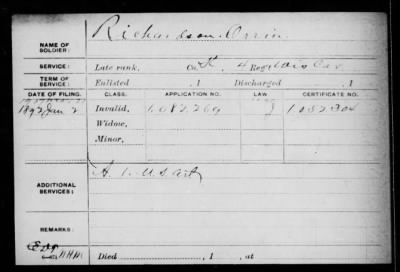 NAME OF SOLDIER: Richardson, Orrin
SERVICE: Late rank, Co. K, 4 Reg't Wis Cav
TERM OF SERVICE: Enlisted , 1 Discharged , 1
DATE OF FILING. CLASS. APPLICATION NO. LAW. CERTIFICATE NO.
1892 Jan 2 Invalid, 1,082,269 1052304
Widow,
Minor,
ADDITIONAL SERVICES: A. 1. U S Art
REMARKS:
Died , 1 , at